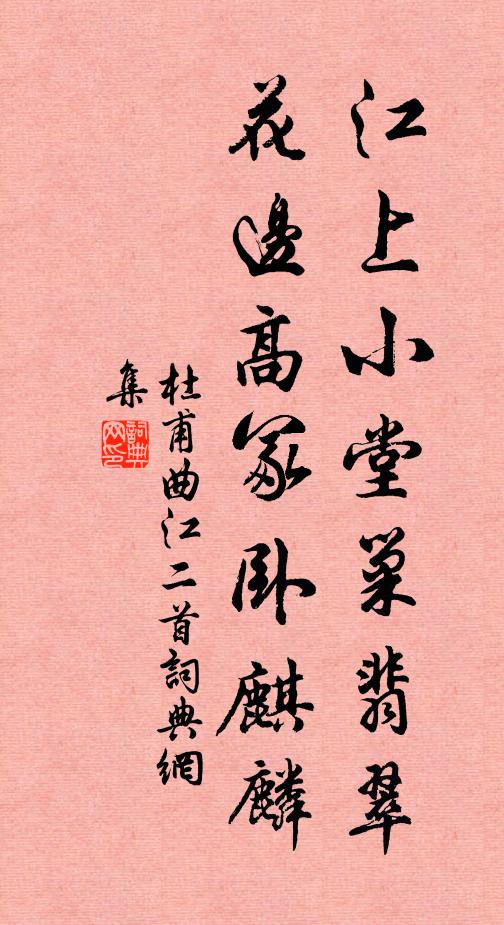 江上小堂巢翡翠
花邊高冢臥麒麟
杜甫曲江二首詞典網
集
詞典網印